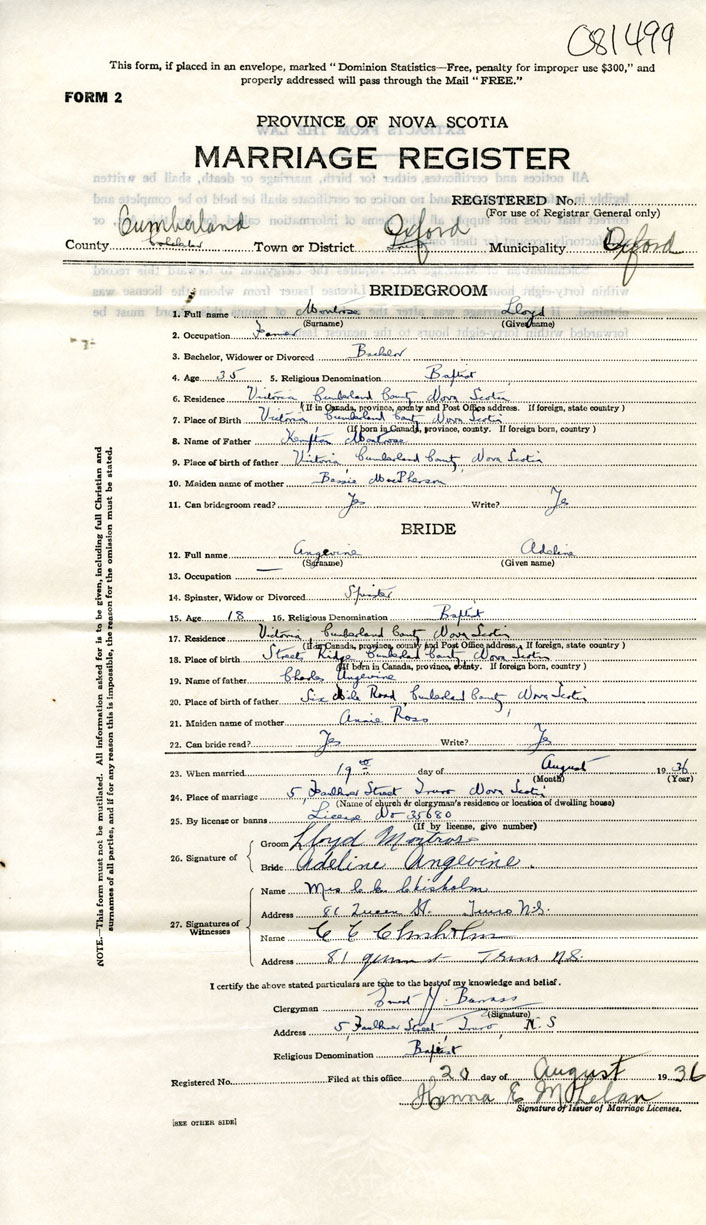 081499
This form, if placed in an envelope, marked "Dominion Statistics—Free, penalty for improper use $300," and
properly addressed will pass through the Mail "FREE."
FORM 2
PROVINCE OF NOVA SCOTIA
MARRIAGE REGISTER
REGISTERED No.
(For use of Registrar General only)
Cumberland
County Colchester Town or District Oxford Municipality Oxford
BRIDEGROOM
1. Full name Montrose Lloyd
(Surname) (Given name)
2. Occupation Farmer
3. Bachelor, Widower or Divorced Bachelor
4. Age 35 5. Religious Denomination Baptist
6. Residence Victoria Cumberland County Nova Scotia
(If in Canada, province, county and Post Office address. If foreign, state country)
7. Place of Birth Victoria Cumberland County Nova Scotia
(If born in Canada, province, county. If foreign born, country)
8. Name of Father Kempton Montrose
9. Place of birth of father Victoria Cumberland County Nova Scotia
10. Maiden name of mother Bessie MacPherson
11. Can bridegroom read? Yes Write? Yes
BRIDE
12. Full name Angevine Adeline
(Surname) (Given name)
13. Occupation —
14. Spinster, Widow or Divorced Spinster
15. Age 18 16. Religious Denomination Baptist
17. Residence Victoria Cumberland County Nova Scotia
(If in Canada, province, county and Post Office address. If foreign, state country)
18. Place of birth Street Ridge Cumberland County Nova Scotia
(If born in Canada, province, county. If foreign born, country)
19. Name of father Charles Angevine
20. Place of birth of father Six Mile Road, Cumberland County Nova Scotia
21. Maiden name of mother Annie Ross
22. Can bride read? Yes Write? Yes
23. When married 19th day of August 1936
(Month) (Year)
24. Place of marriage 5 Faulkner Street Truro Nova Scotia
(Name of church or clergyman's residence or location of dwelling house)
25. By license or banns License No 35680
(If by license, give number)
26. Signature of
Groom Lloyd Montrose
Bride Adeline Angevine.
27. Signatures of Witnesses
Name Mrs C. E. Chisholm
Address 81 Queen St. Truro N.S.
Name C E Chisholm
Address 81 Queen st Truro N.S.
I certify the above stated particulars are true to the best of my knowledge and belief.
Clergyman Barrass
(Signature)
Address 5 Faulkner Street Truro, N.S
Religious Denomination Baptist
Registered No. Filed at this office 20 day of August 1936
Hanna E McLelan
Signature of Issuer of Marriage Licenses.
[SEE OTHER SIDE]
NOTE.—This form must not be mutilated. All information asked for is to be given, including full Christian and
surnames of all parties, and if for any reason this is impossible, the reason for the omission must be stated.